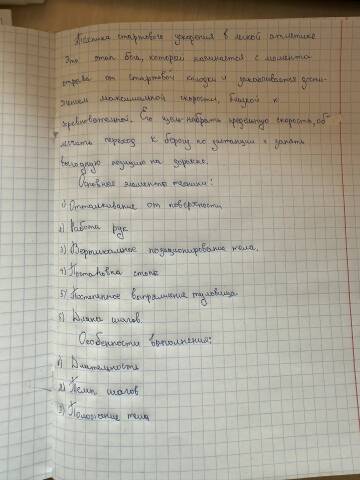 Техника стартового ускорения в легкой атлетике
Это этап бега, который начинается с момента
отрыва от стартовой колодки и заканчивается дости-
жением максимальной скорости, близкой к
соревновательной. Его цель - набрать предельную скорость, об
легчить переход к бегу по дистанции и занять
выгодную позицию на дорожке.
Основные элементы техники:
1) Отталкивание от поверхности
2) Работа рук
3) Вертикальное позиционирование тела.
4) Постановка стопы
5) Постепенное выпрямление туловища
6) Длина шагов.
Особенности выполнения:
1) Длительность
2) Темп шагов
3) Положение тела